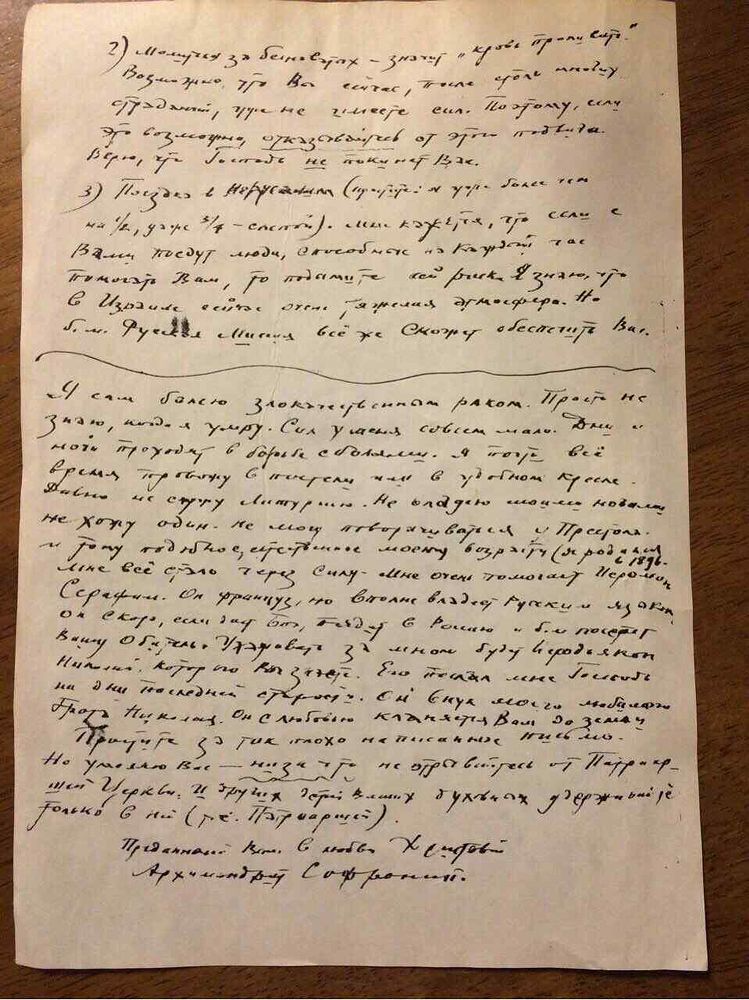 2) Молиться за бесноватых – значит „кровь проливать."
Возможно, что Вы сейчас, после столь многих
страданий, уже не имеете сил. Поэтому, если
это возможно, отказывайтесь от этого подвига.
Верю, что Господь не покинет Вас.
3) Поездка в Иерусалим (простите: я уже более чем
на 1/2, даже 3/4 – слепой). Мне кажется, что если с
Вами поедут люди, способные на каждый час
помогать Вам, то поднимите сей риск. Я знаю, что
в Израиле сейчас очень тяжелая атмосфера. Но
б.м. Русская Миссия всё же сможет обеспечить Вас.
Я сам болею злокачественным раком. Просто не
знаю, когда я умру. Сил у меня совсем мало. Дни и
ночи проходят в борьбе с болями. Я почти всё
время провожу в постели или в удобном кресле.
Давно не служу Литургию. Не владею моими ногами
не хожу один. Не могу поворачиваться у Престола.
и тому подобное, естественное моему возрасту (я родился
в 1896.
Мне всё стало через силу. Мне очень помогает Иеромон.
Серафим. Он француз, но вполне владеет Русским языком.
Он скоро, если даст Бог, поедет в Россию и б.м. посетит
Вашу Обитель. Ухаживать за мною будет иеродьякон
Николай, которого Вы знаете. Его послал мне Господь
на дни последней старости. Он внук моего любимого
брата Николая. Он с любовью кланяется Вам до земли
Простите за так плохо написанное письмо.
Но умоляю Вас – низа что не отрывайтесь от Патриар-
шей Церкви. И других детей Ваших духовных удерживайте
только в ней (т.е. Патриаршей).
Преданный Вам в любви Христовой
Архимандрит Софроний.